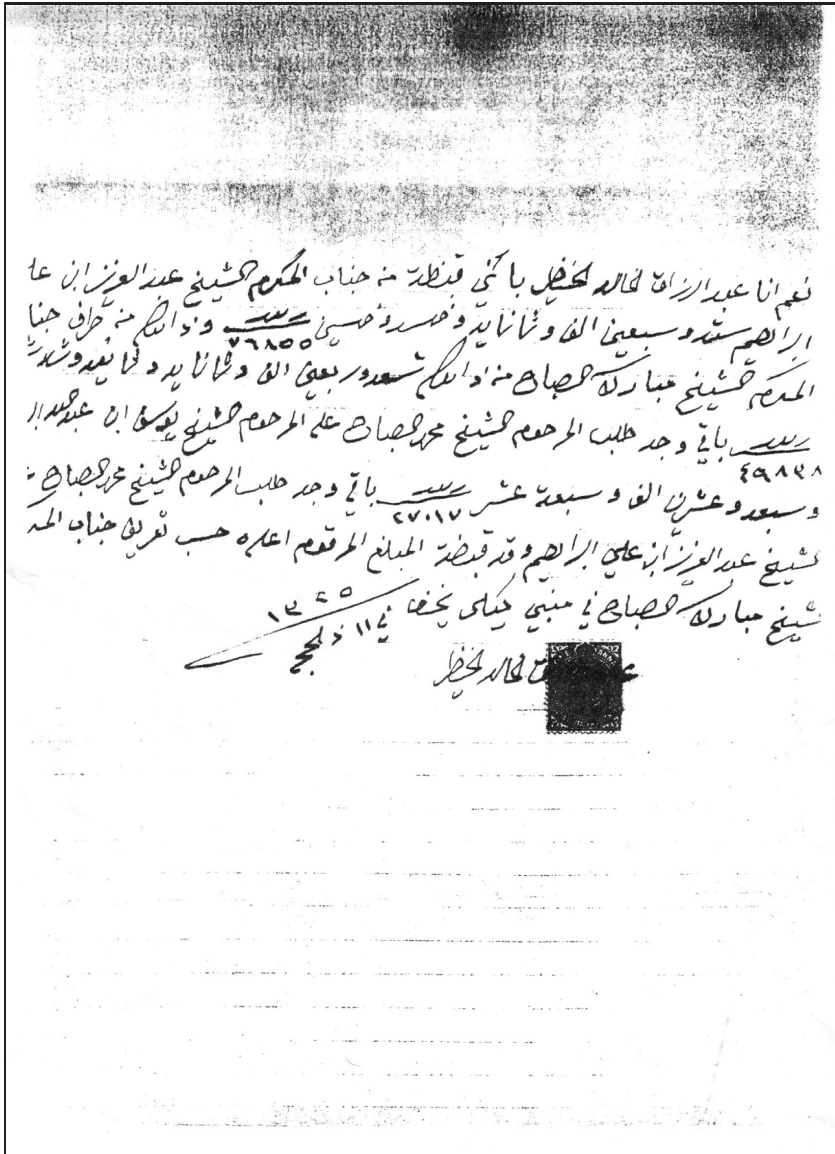 نعم انا عبد الرزاق الخالد الخضير باني قبضة من جناب المكرم الشيخ عبد العزيز ابن علي
ابراهيم ستة وسبعين الف وثمانماية وخمسة وخمسين ربيه ٧٦٨٥٥ وذالكم من طرف جنا
المكرم الشيخ مبارك الصباح من اذالكم تسعة وربعين الف وثمانماية وثمانية وثلاث
ربيه ٤٩٨٣٨ باقي وجد طلب المرحوم الشيخ محمد الصباح على المرحوم الشيخ يوسف ابن عبدالله
وسبعة وعشرين الف وسبعة عشر ربيه ٢٧٠١٧ باقي وجد طلب المرحوم الشيخ محمد الصباح
الشيخ عبد العزيز ابن علي ابراهيم وقد قبضة المبلغ المرقوم اعلاه حسب تعريف جناب المكـ
شيخ مبارك الصباح في منبي ليكلى يخفا في ١١ ذلحجح ١٣٢٥
الخالد الخضير